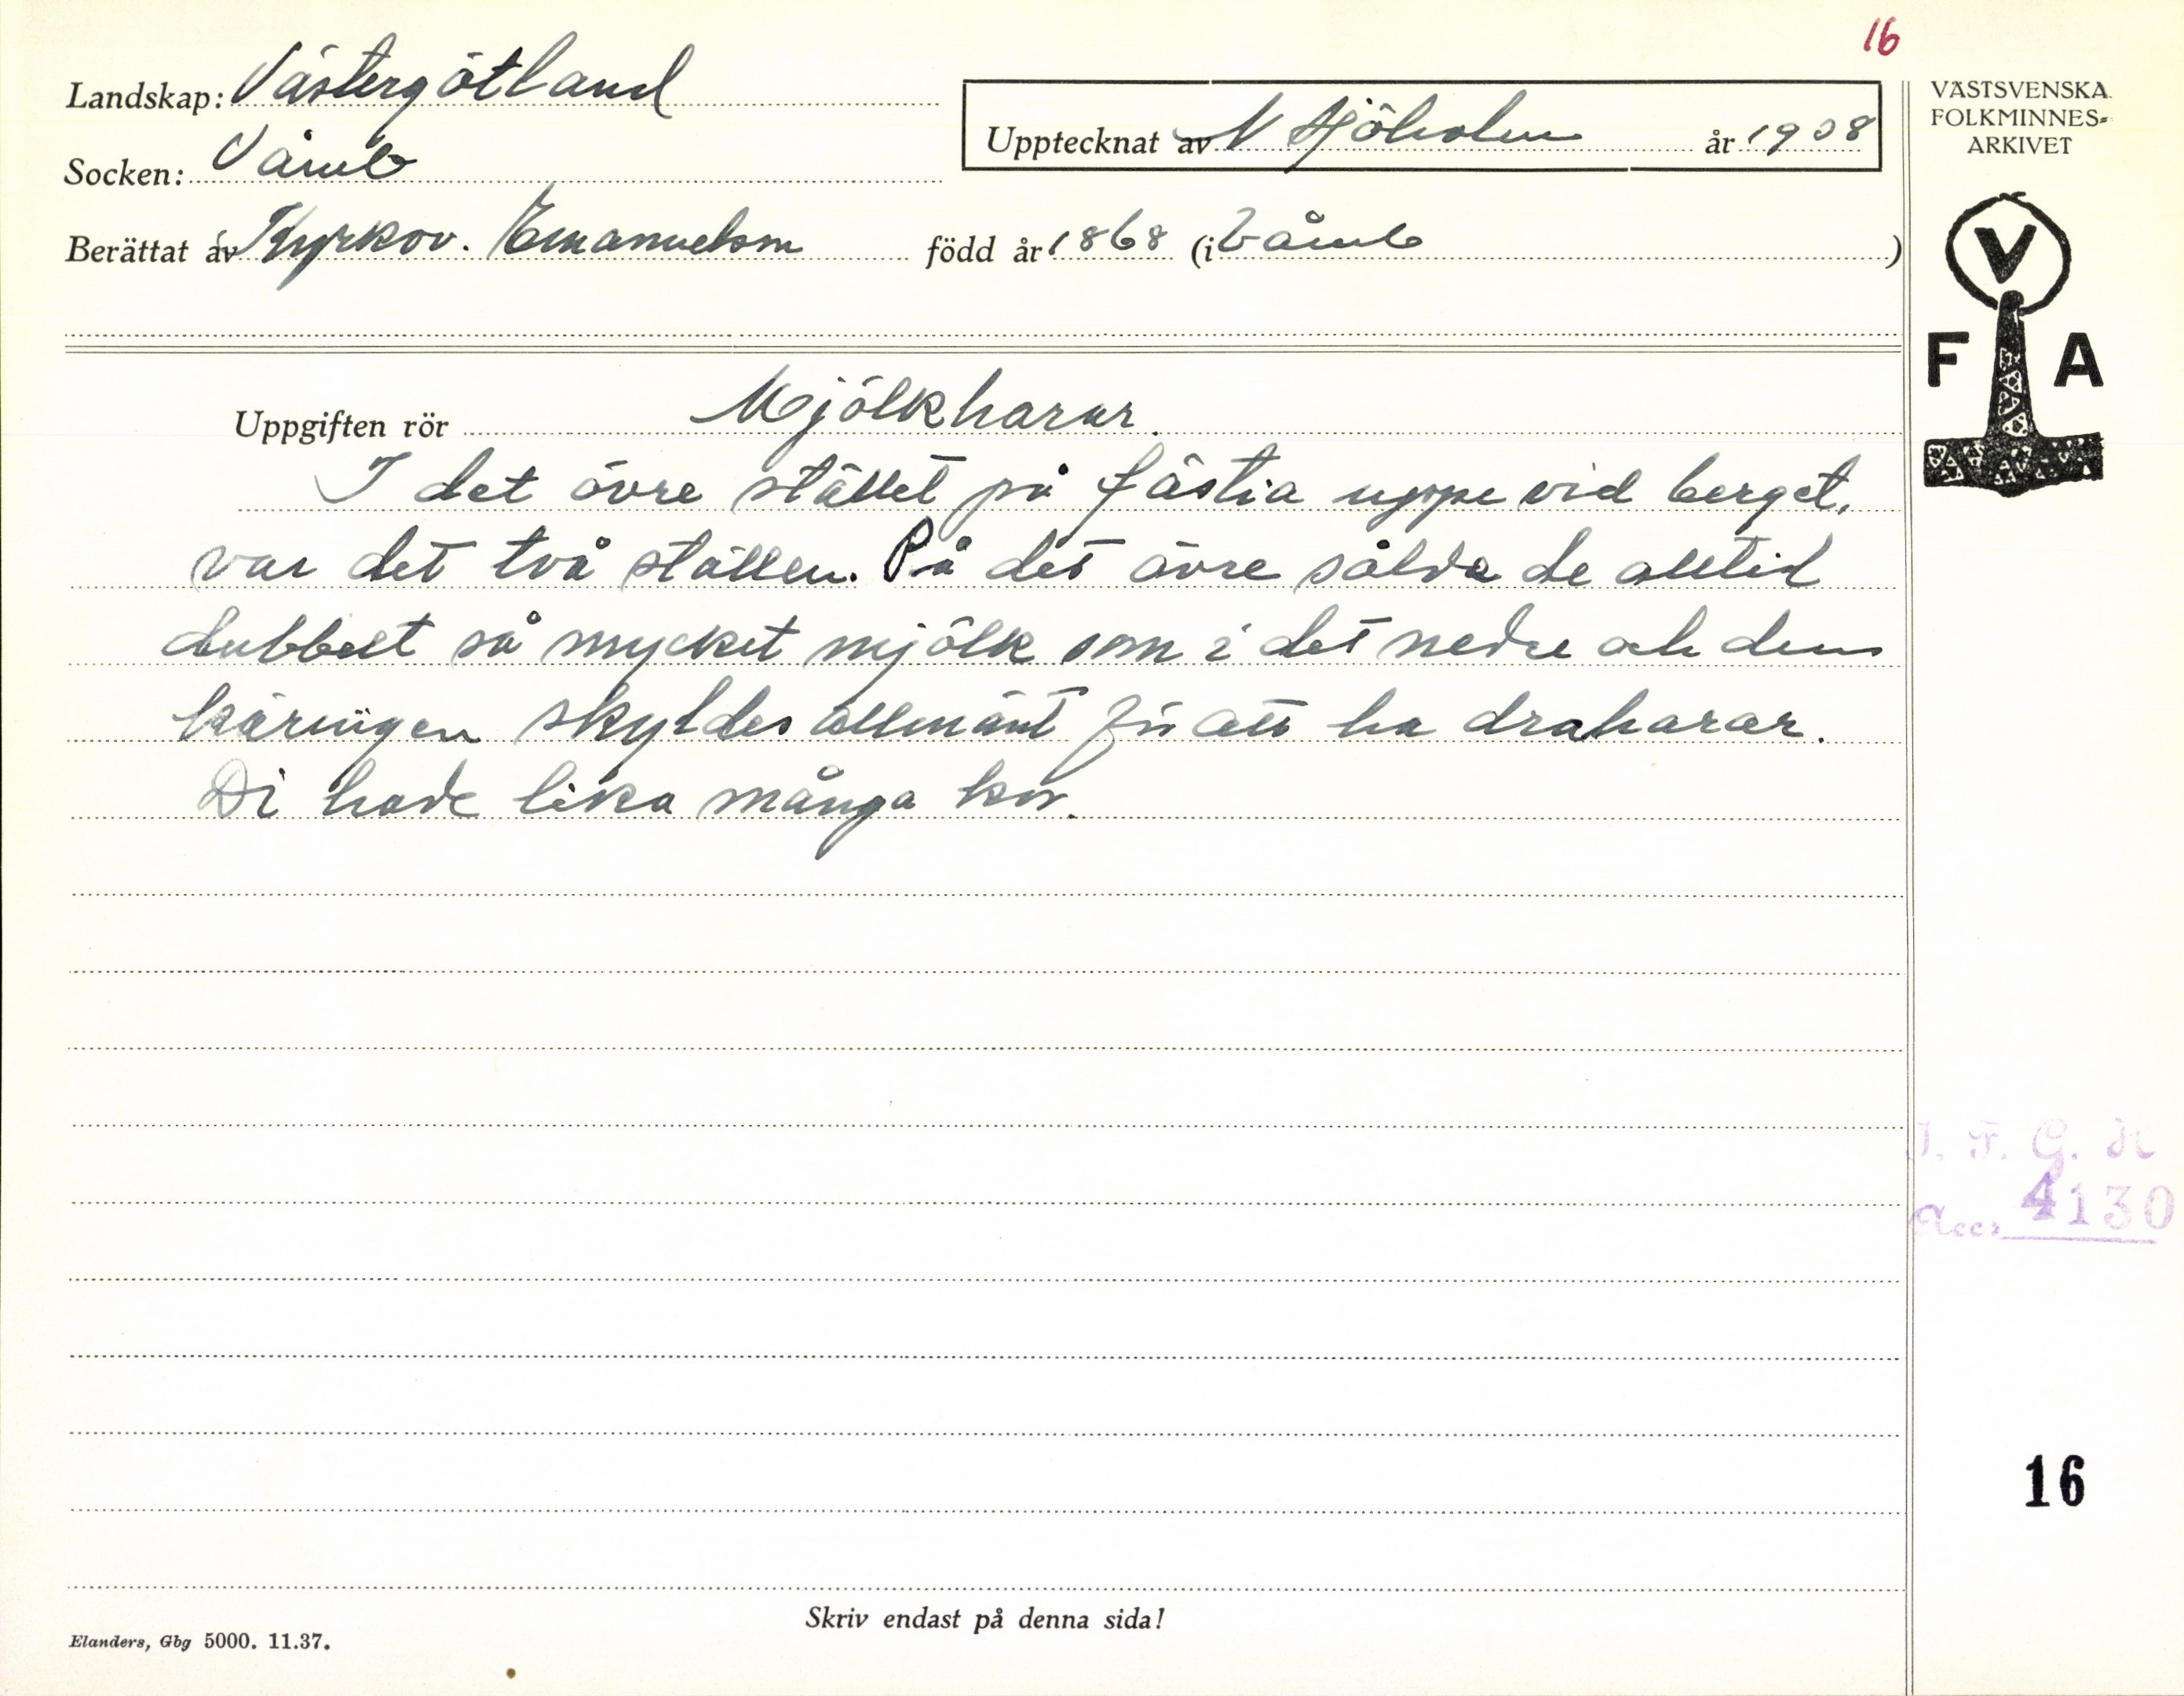 16
Landskap: Västergötland
Socken: Våmb
Upptecknat av N Sjöholm år 1938
Berättat av Kyrkov. Emanuelson född år 1868 (i Våmb )
VÄSTSVENSKA
FOLKMINNES-
ARKIVET
V
F A
Uppgiften rör Mjölkharar.
I det övre stället på Fästia uppe vid berget,
var det två ställen. På det övre sålde de alltid
dubbelt så mycket mjölk som i det nedre och den
käringen skyldes allmänt för att ha draharar.
Di hade lika många kor.
I. F. G. H
Acc. 4130
16
Skriv endast på denna sida!
Elanders, Gbg 5000. 11.37.